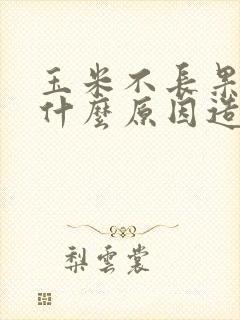 玉米不長果
什麼原因造
梨雲裳